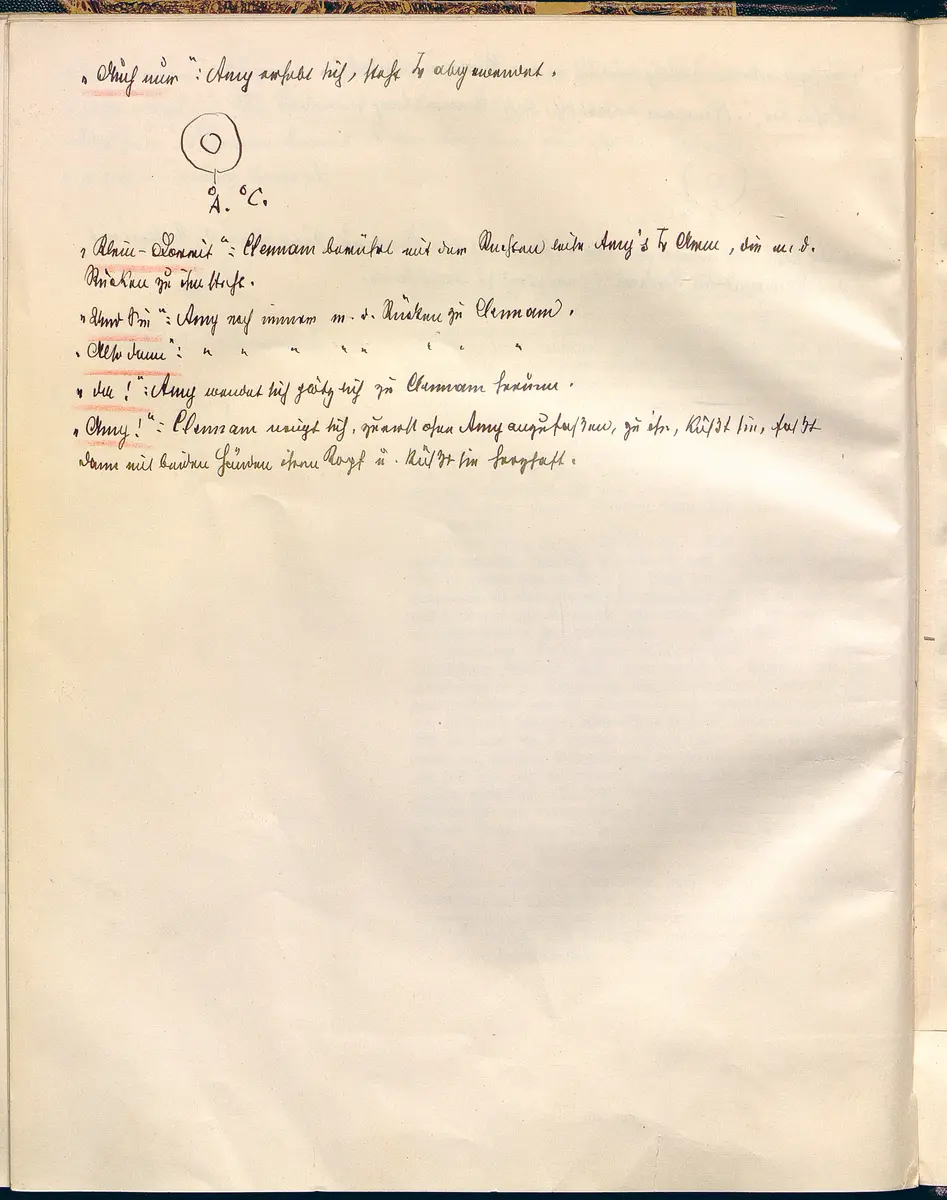 „Auch nur“: Amy erhebt sich, steht abgewendet.
A. C.
„Klein-Dorrit“: Clennam berührt mit der Rechten leise Amy's Arm, die m. d.
Rücken zu ihm steht.
„Und Sie“: Amy noch immer m. d. Rücken zu Clennam.
„Also dann“: " " " " " " " "
„da!“: Amy wendet sich plötzlich zu Clennam herum.
„Amy!“: Clennam neigt sich, zuerst ohne Amy anzufassen, zu ihr, küßt sie, faßt
dann mit beiden Händen ihren Kopf u. küßt sie herzhaft.